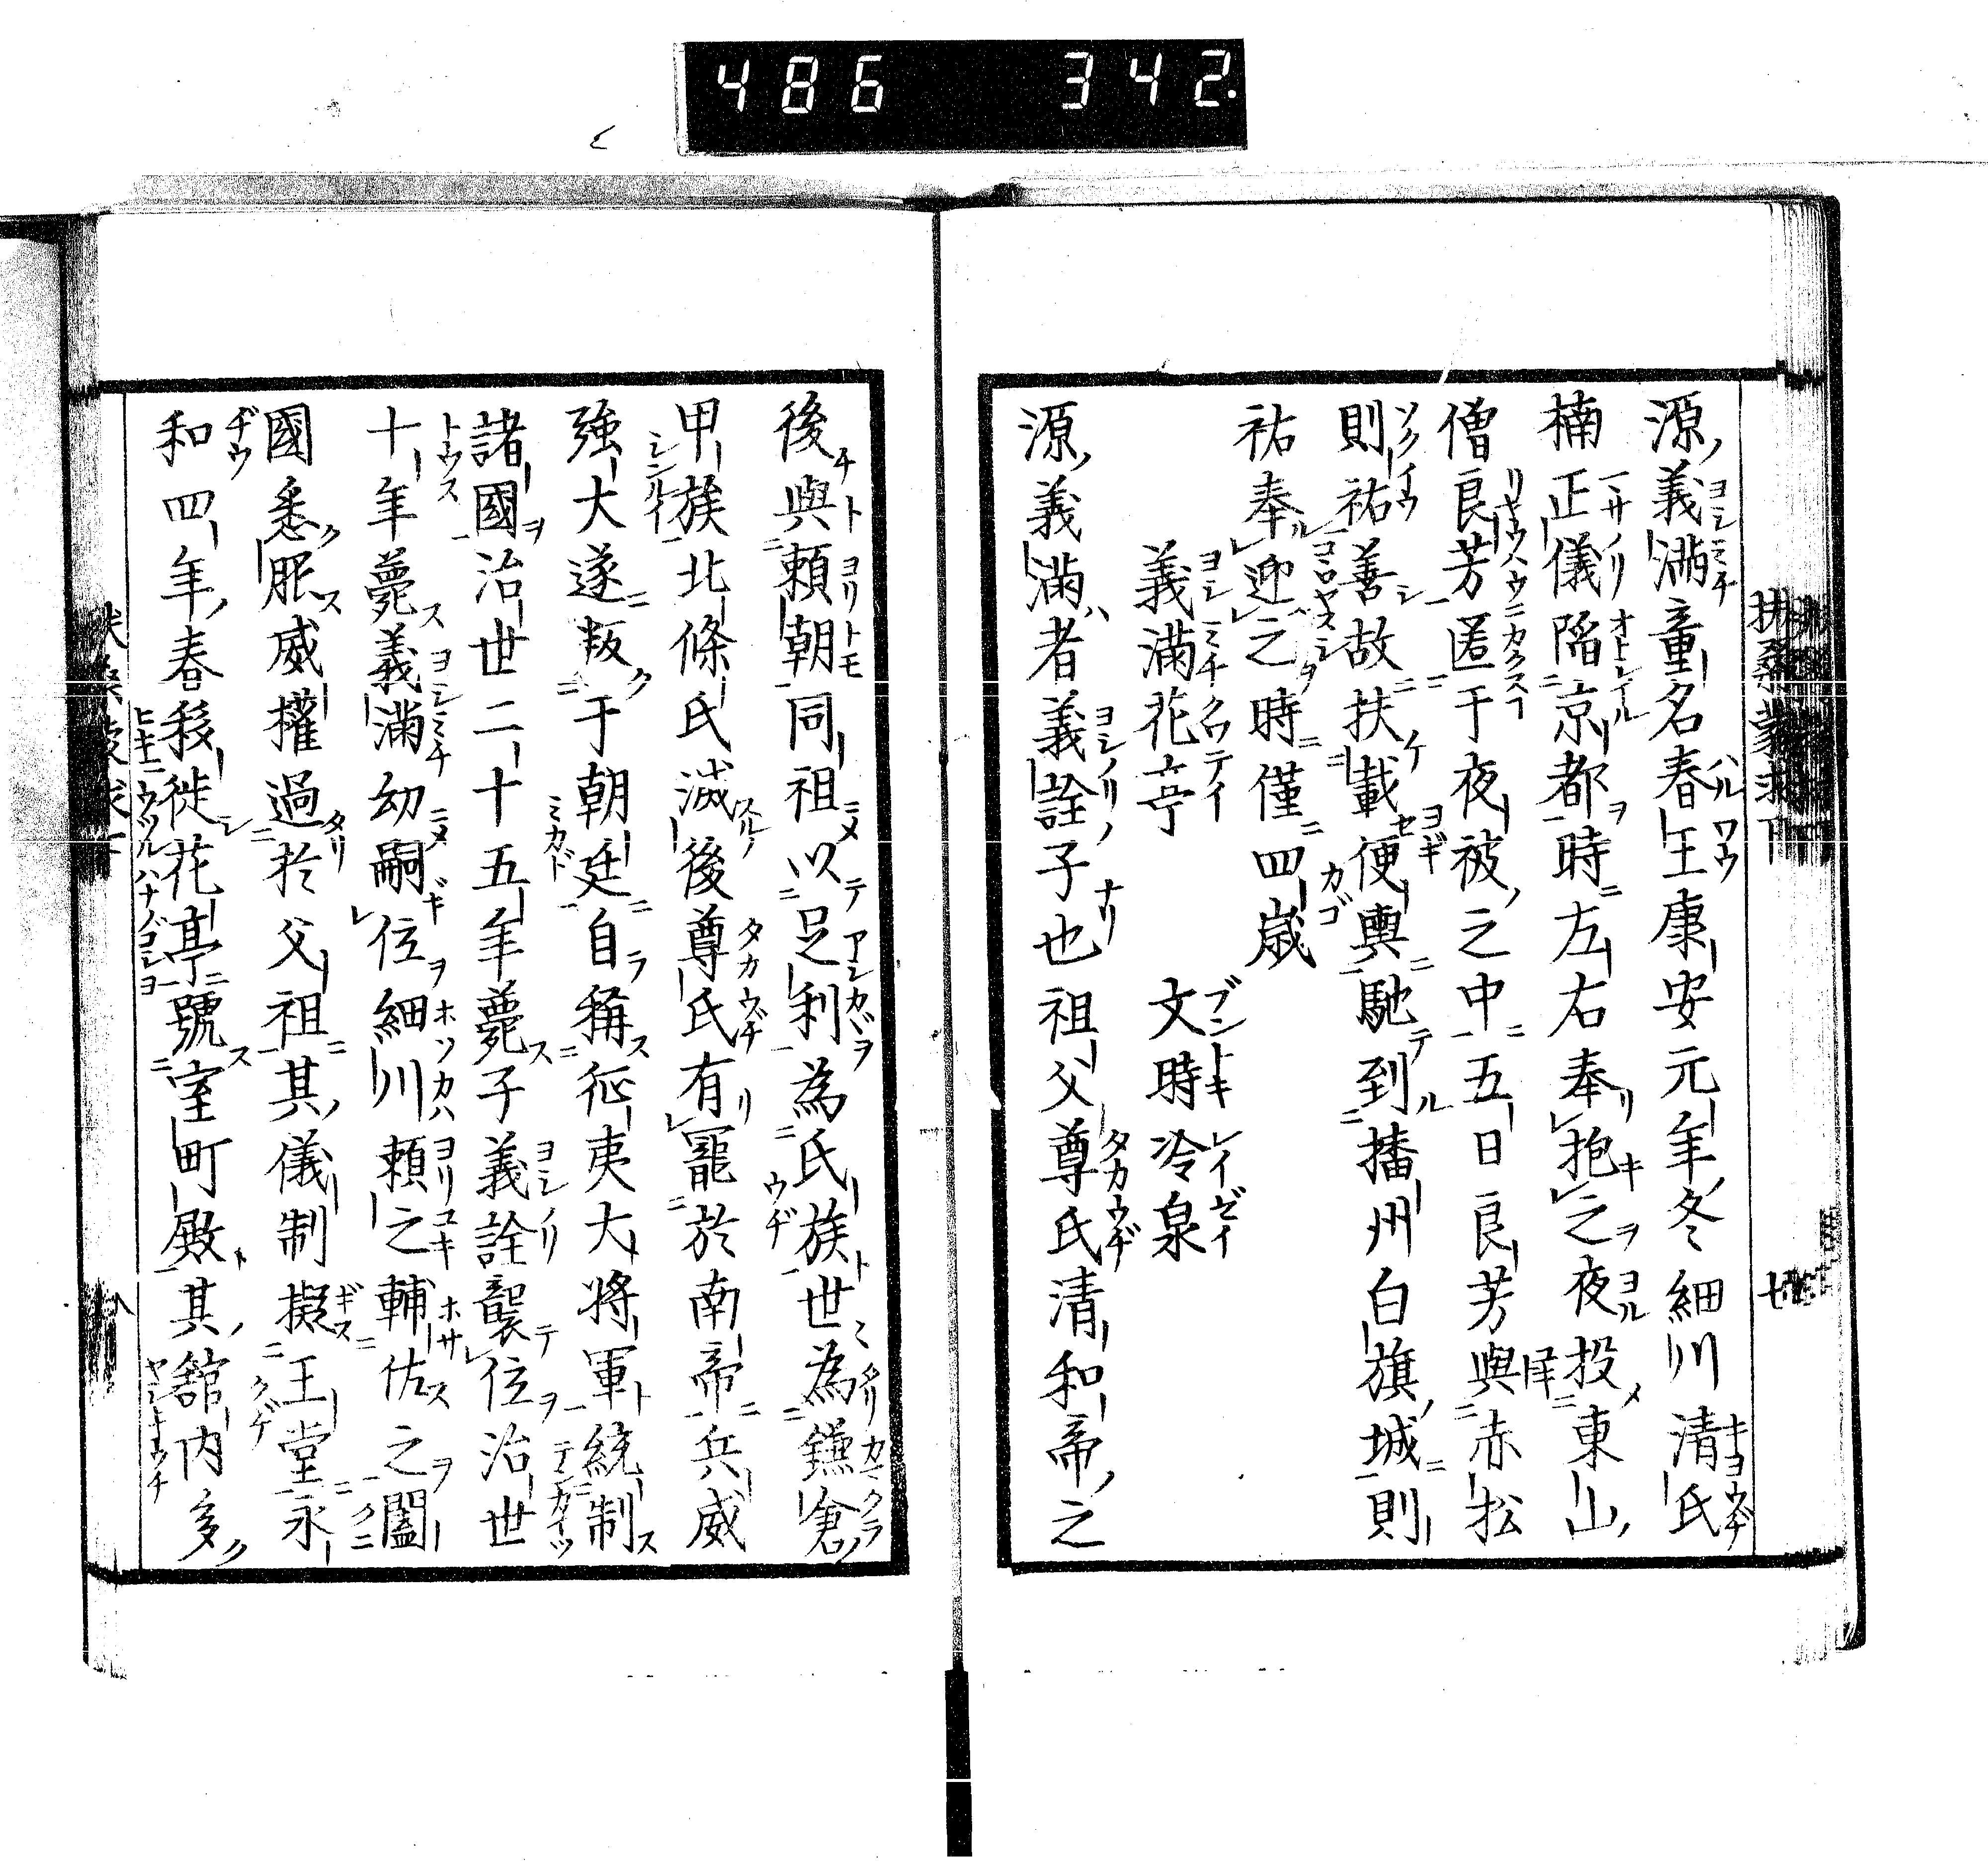 486 342.
扶桑蒙求下
七
源義滿童名春王康安元年冬細川清氏
楠正儀陷京都時左右奉抱之夜投東山
僧良芳匿于夜被之中五日良芳與赤松
則祐善故扶載便輿馳到播州白旗城則
祐奉迎之時僅四歲
義滿花亭 文時冷泉
源義滿者義詮子也祖父尊氏清和帝之
後與賴朝同祖以足利為氏族世為鎌倉
甲族北條氏滅後尊氏有寵於南帝兵威
強大遂叛于朝廷自稱征夷大將軍統制
諸國治世二十五年薨子義詮襲位治世
十年薨義滿幼嗣位細川賴之輔佐之闔
國悉服威權過於父祖其儀制擬王堂永
和四年春移徙花亭號室町殿其舘内多